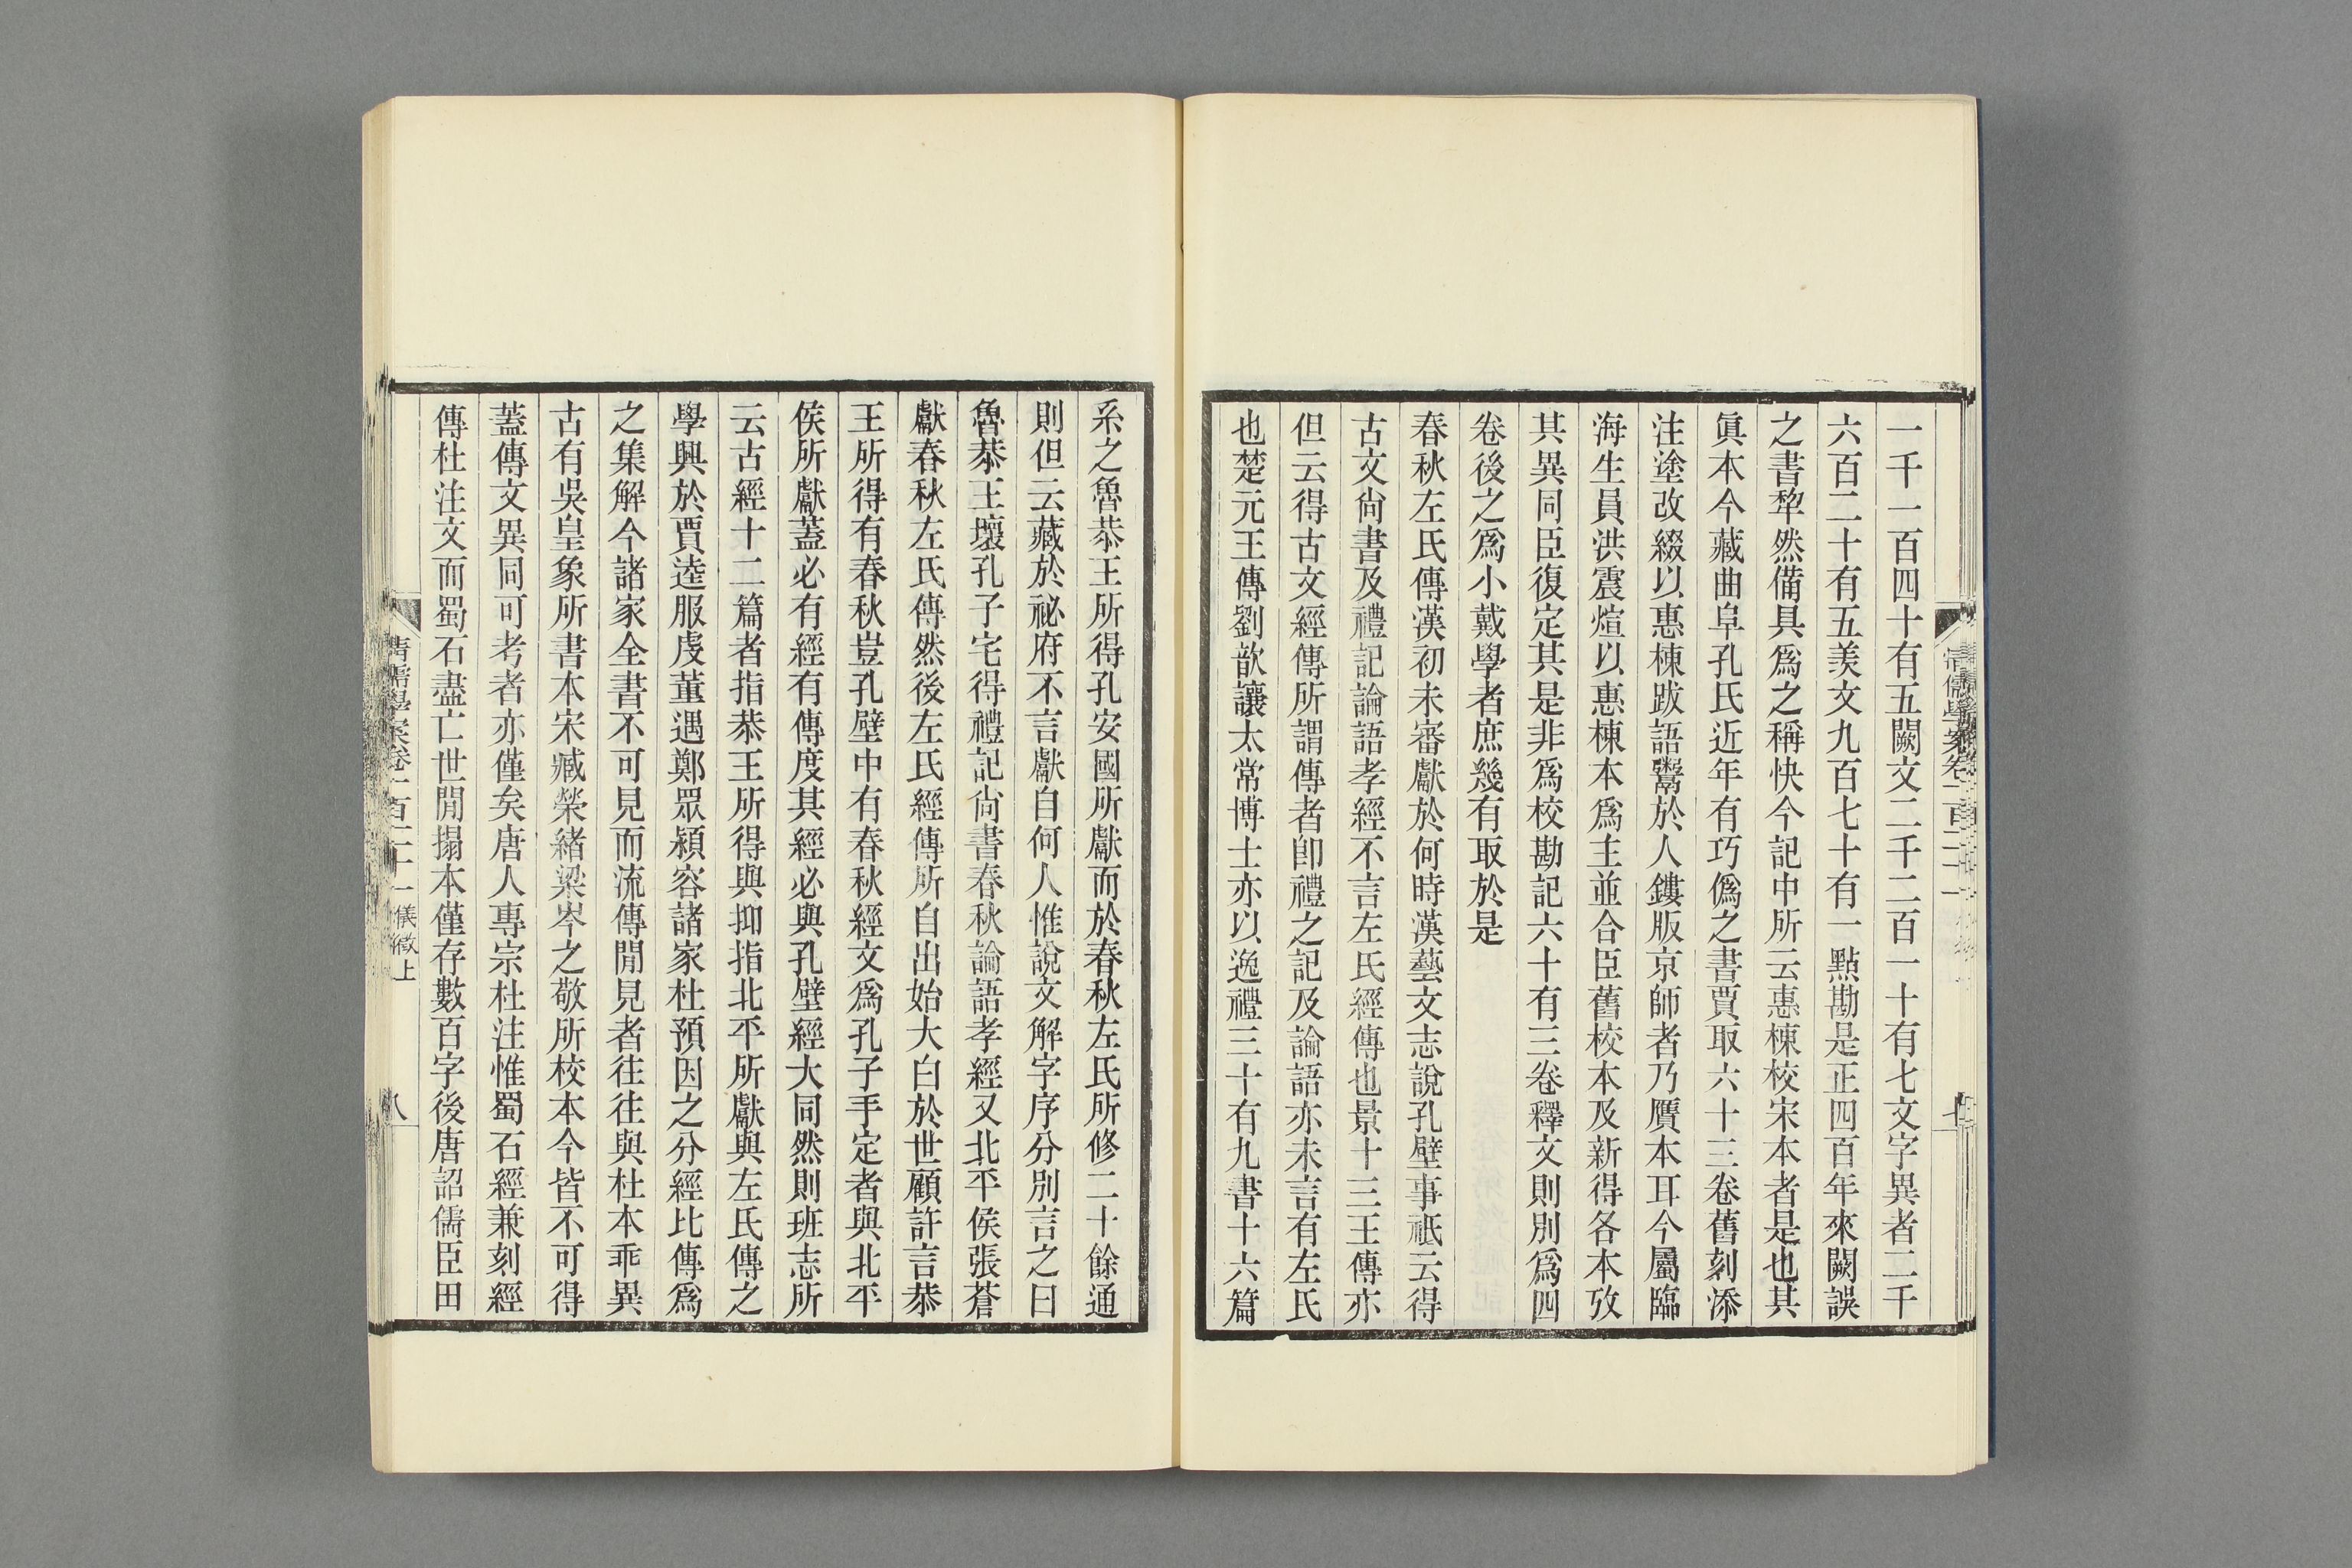 一千一百四十有五闕文二千二百一十有七文字異者二千
六百二十有五羨文九百七十有一點勘是正四百年來闕誤
之書犂然備具爲之稱快今記中所云惠棟校宋本者是也其
眞本今藏曲阜孔氏近年有巧僞之書賈取六十三卷舊刻添
注塗改綴以惠棟跋語鬻於人鏤版京師者乃贋本耳今屬臨
海生員洪震煊以惠棟本爲主並合臣舊校本及新得各本攷
其異同臣復定其是非爲校勘記六十有三卷釋文則別爲四
卷後之爲小戴學者庶幾有取於是
春秋左氏傳漢初未審獻於何時漢藝文志說孔壁事祇云得
古文尙書及禮記論語孝經不言左氏經傳也景十三王傳亦
但云得古文經傳所謂傳者卽禮之記及論語亦未言有左氏
也楚元王傳劉歆讓太常博士亦以逸禮三十有九書十六篇
系之魯恭王所得孔安國所獻而於春秋左氏所修二十餘通
則但云藏於祕府不言獻自何人惟說文解字序分別言之曰
魯恭王壞孔子宅得禮記尙書春秋論語孝經又北平侯張蒼
獻春秋左氏傳然後左氏經傳所自出始大白於世顧許言恭
王所得有春秋豈孔壁中有春秋經文爲孔子手定者與北平
侯所獻蓋必有經有傳度其經必與孔壁經大同然則班志所
云古經十二篇者指恭王所得與抑指北平所獻與左氏傳之
學興於賈逵服虔董遇鄭眾潁容諸家杜預因之分經比傳爲
之集解今諸家全書不可見而流傳閒見者往往與杜本乖異
古有吳皇象所書本宋臧榮緒梁岑之敬所校本今皆不可得
蓋傳文異同可考者亦僅矣唐人專宗杜注惟蜀石經兼刻經
傳杜注文而蜀石盡亡世閒搨本僅存數百字後唐詔儒臣田
清儒學案卷一百二十一 儀徵上
八